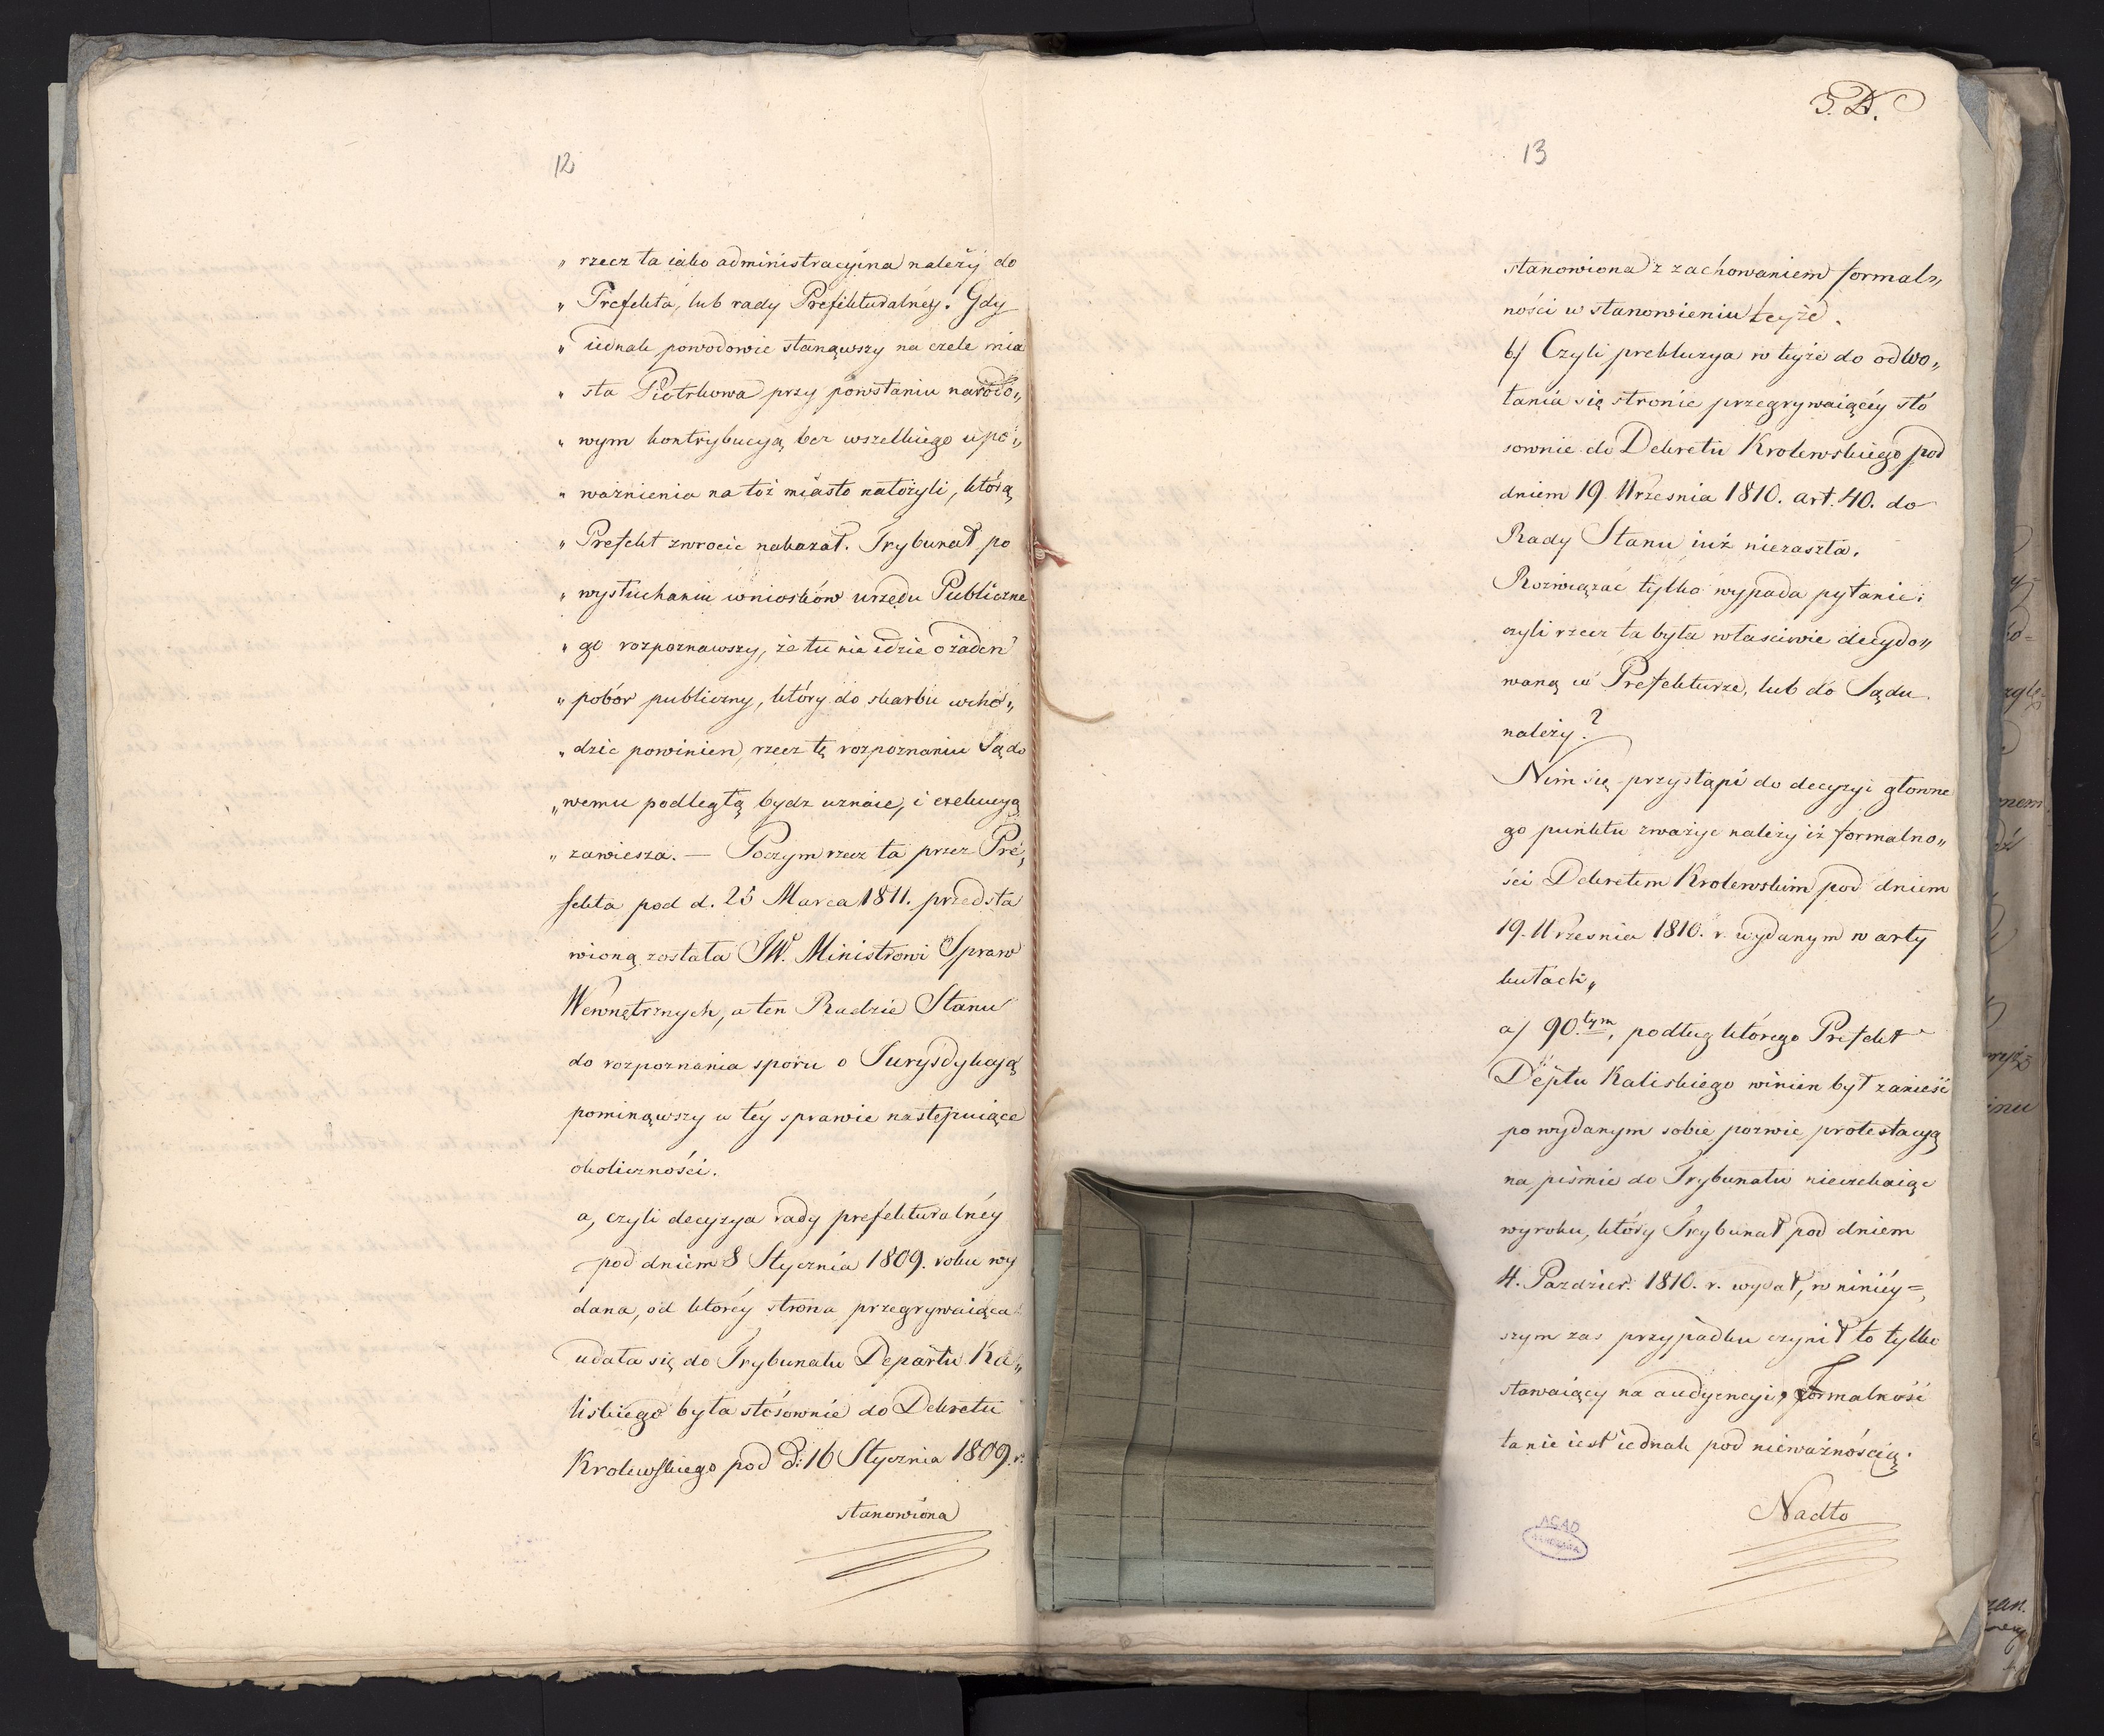 12
„ rzecz ta iako administracyina należy do
„ Prefekta, lub rady Prefekturalnéy. Gdy
„ iednak powodowie stanąwszy na czele mia
„ sta Piotrkowa przy powstaniu narodo„
„ wym kontrybucyą bez wszelkiego upo„
„ ważnienia na toż miasto nałożyli, którą
„ Prefekt zwrocic nakazał. Trybunał po
„ wysłuchaniu wniosków urzędu Publiczne
„ go rozpoznawszy, że tu nie idzie o żaden
„ pobór publiczny, który do skarbu wcho„
„ dzic powinien, rzecz tę rozpoznaniu Sądo
„ wemu podległą bydz uznaie, i exekucyą
„ zawiesza. — Poczym rzecz ta przez Pre„
fekta pod d. 25 Marca 1811. przedsta
wioną została JW. Ministrowi Spraw
Wewnętrznych, a ten Radzie Stanu
do rozpoznania sporu o Jurysdykcyą
pominąwszy w téy sprawie następuiące
okoliczności.
a, czyli decyzya rady prefekturalnéy
pod dniem 8 Stycznia 1809. roku wy
dana, od któréy strona przegrywaiąca
udała się do Trybunału Departu Ka„
liskiego była stósownie do Dekretu
Krolewskiego pod d: 16 Stycznia 1809. r.
stanowiona
3. D.
13
stanowiona z zachowaniem formal„
ności w stanowieniu teyże.
b/ Czyli prekluzya w teyże do odwo„
łania się stronie przegrywaiącéy sto
sownie do Dekretu Krolewskiego pod
dniem 19 Września 1810. art. 40. do
Rady Stanu iuż niezaszła.
Rozwiązać tylko wypada pytanie:
czyli rzecz ta była własciwie decydo„
waną w Prefekturze, lub do Sądu
należy?
Nim się przystąpi do decyzyi głowne
go punktu zważyc należy iż formalno„
ści Dekretem Krolewskim pod dniem
19. Września 1810. r. wydanym w arty
kułach„
a/ 90.tym, podług którego Prefekt
Deptu Kaliskiego winien był zanieść
po wydanym sobie pozwie protestacyą
na piśmie do Trybunału nieczekaiąc
wyroku, który Trybunał pod dniem
4. Pazdzier. 1810. r. wydał, w ninięy=
szym zas przypadku czynił to tylko
stawaiący na audyencyi, formalność
ta nie iest iednak pod nieważnością.
Nadto
AGAD